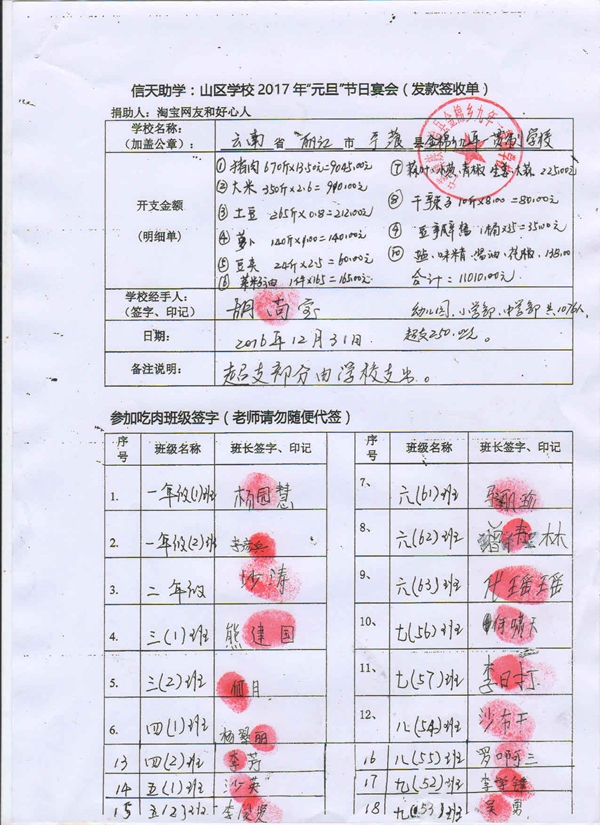 信天助学：山区学校2017年“元旦”节日宴会（发款签收单）
捐助人：淘宝网友和好心人
学校名称：
（加盖公章）：
云南省丽江市 县金棉 学校
开支金额
（明细单）
①猪肉670斤×13.50元=9045.00元
②大米350斤×2.6=910.00元
③土豆265斤×0.8=212.00元
④萝卜140斤×1.00=140.00元
⑤豆 24斤×2.5=60.00元
⑥菜籽油1件×165=165.00元
⑦ 青椒 生姜 大蒜 225.00元
⑧干 10斤×8.00=80.00元
⑨ ×35=35.00元
⑩盐、味精、酱油、 138.00
合计：11010.00元
学校经手人：
（签字、印记）
胡尚
幼儿园、小学部、中学部共
超支250.
日期：
2016年12月31日
备注说明：
超支部分由学校支出。
参加吃肉班级签字（老师请勿随便代签）
序号 班级名称 班长签字、印记
1. 一年级(1)班 杨国慧
2. 一年级(2)班
3. 二年级 沙涛
4. 三(1)班 熊建国
5. 三(2)班 何月
6. 四(1)班 杨翠丽
13 四(2)班 李芳
14 五(1)班 沙英
15 五(2)班 李
序号 班级名称 班长签字、印记
7、 六(61)班
8、 六(62)班 林
9、 六(63)班 瑶瑶
10、 九(56)班 啸天
11、 九(57)班 李日
12、 八(54)班 沙布干
16 八(55)班 罗 三
17 九(52)班 李学
18 九(53)班 吴勇